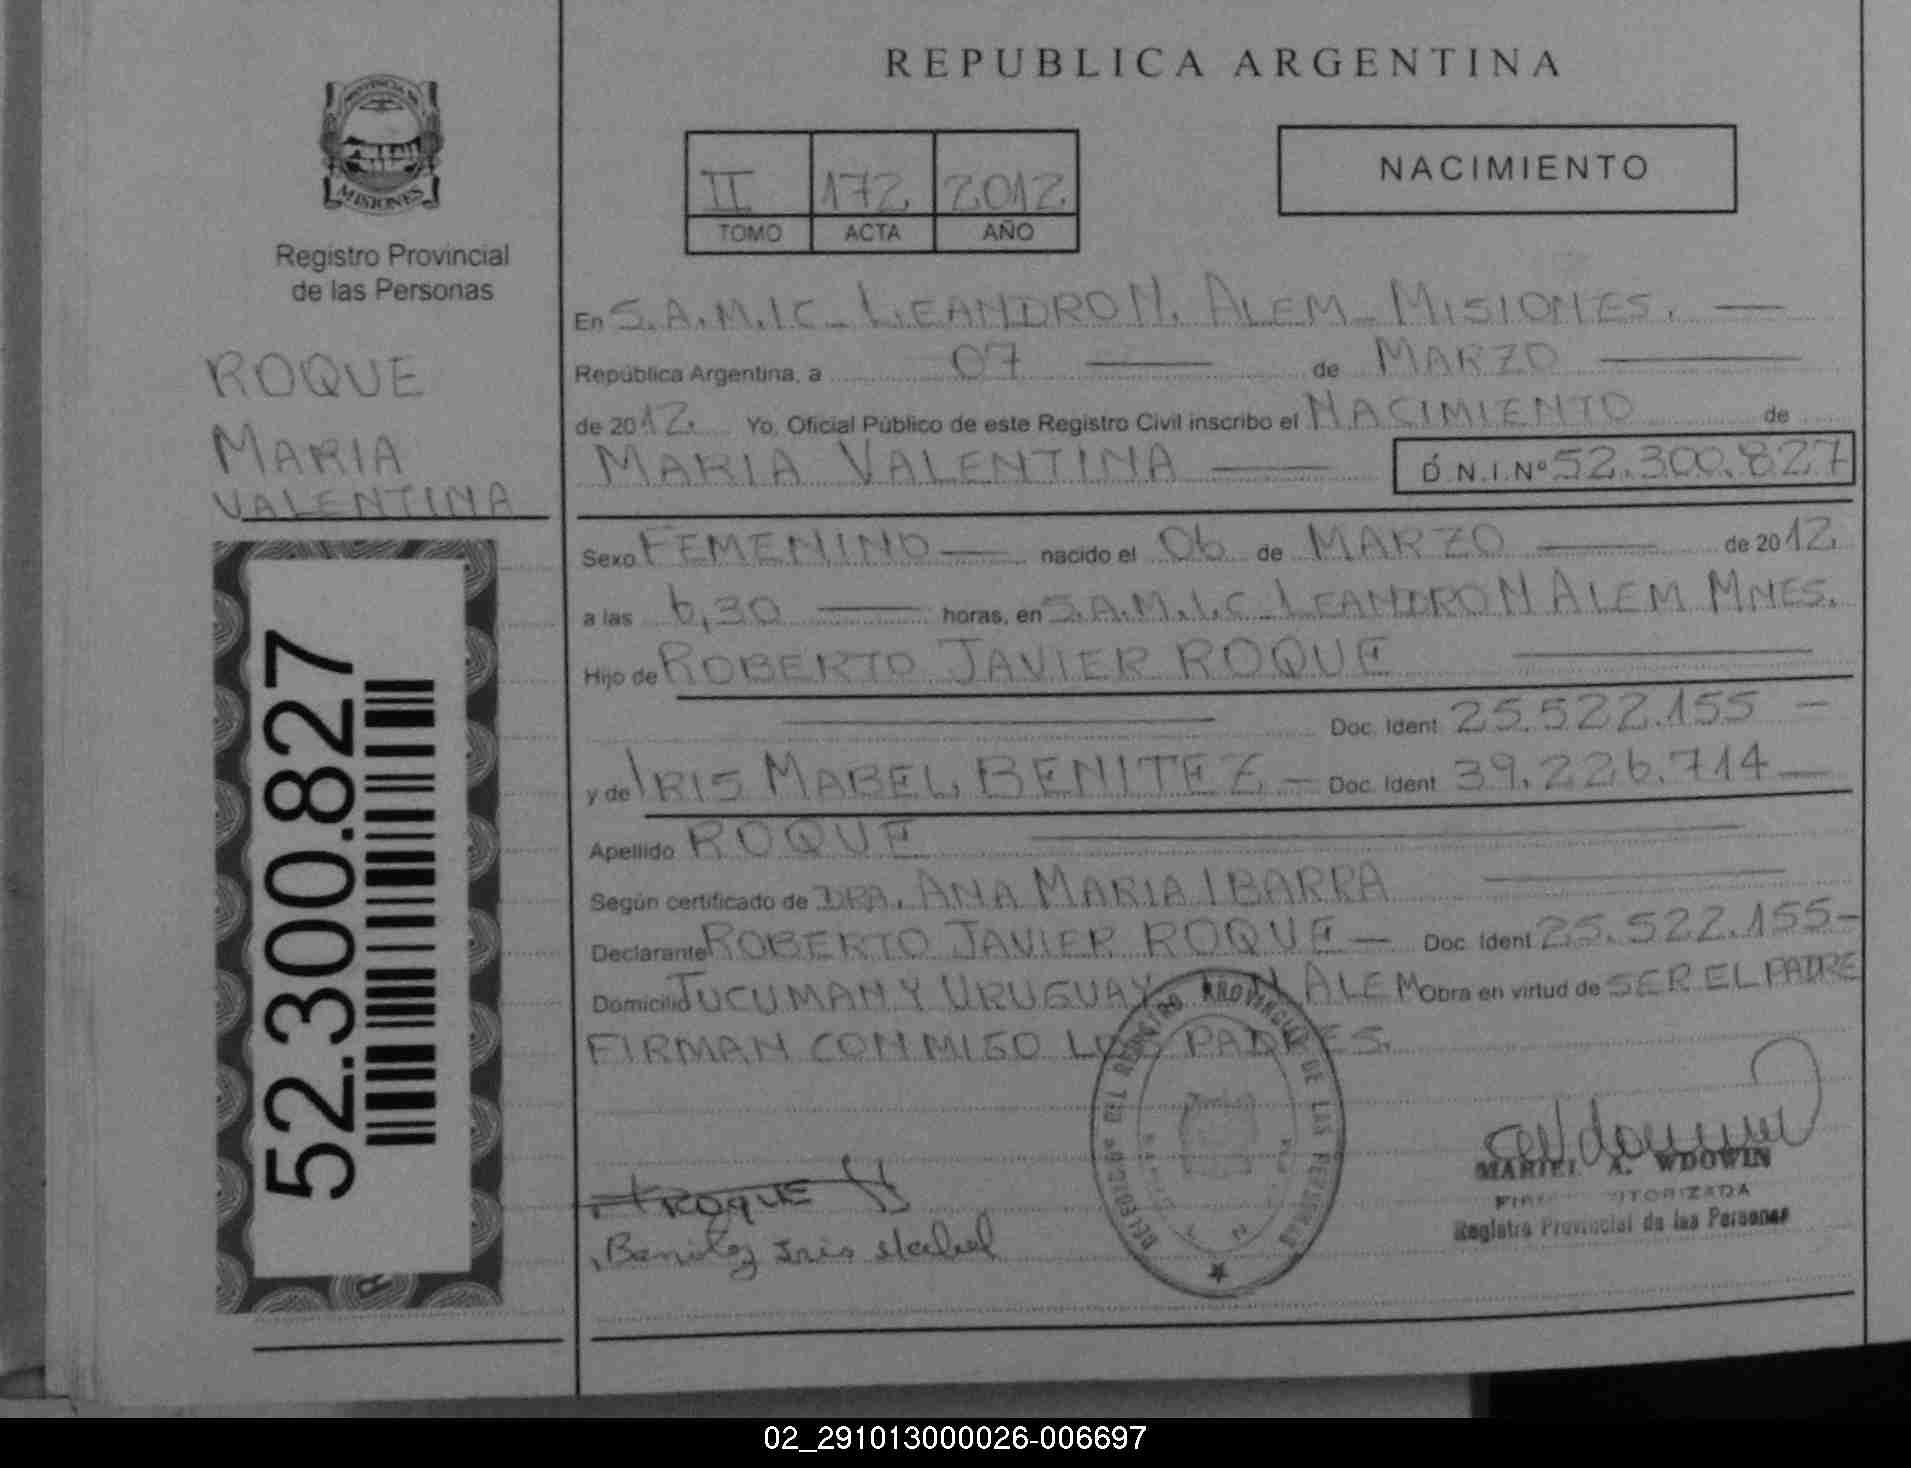 REPUBLICA ARGENTINA
PROVINCIA DE
MISIONES
Registro Provincial
de las Personas
ROQUE
MARIA
VALENTINA
52.300.827
II 172 2012
TOMO ACTA AÑO
NACIMIENTO
En S.A.M.I.C_ LEANDRO N. ALEM_ MISIONES.
República Argentina, a 07 de MARZO
de 2012. Yo, Oficial Público de este Registro Civil inscribo el NACIMIENTO de
MARIA VALENTINA D.N.I.Nº 52.300.827
Sexo FEMENINO nacido el 06 de MARZO de 2012.
a las 6,30 horas, en S.A.M.I.C_ LEANDRO N ALEM MNES.
Hijo de ROBERTO JAVIER ROQUE
Doc. Ident 25.522.155
y de IRIS MABEL BENITEZ Doc. Ident 39.226.714
Apellido ROQUE
Según certificado de DRA. ANA MARIA IBARRA
Declarante ROBERTO JAVIER ROQUE Doc. Ident 25.522.155
Domicilio TUCUMAN Y URUGUAY N ALEM Obra en virtud de SER EL PADRE
FIRMAN CONMIGO LOS PADRES.
DELEGACION DEL REGISTRO PROVINCIAL DE LAS PERSONAS
ROQUE
Benitez Iris Mabel
MARIEL A. WDOWIN
AUTORIZADA
Registro Provincial de las Personas
02_291013000026-006697